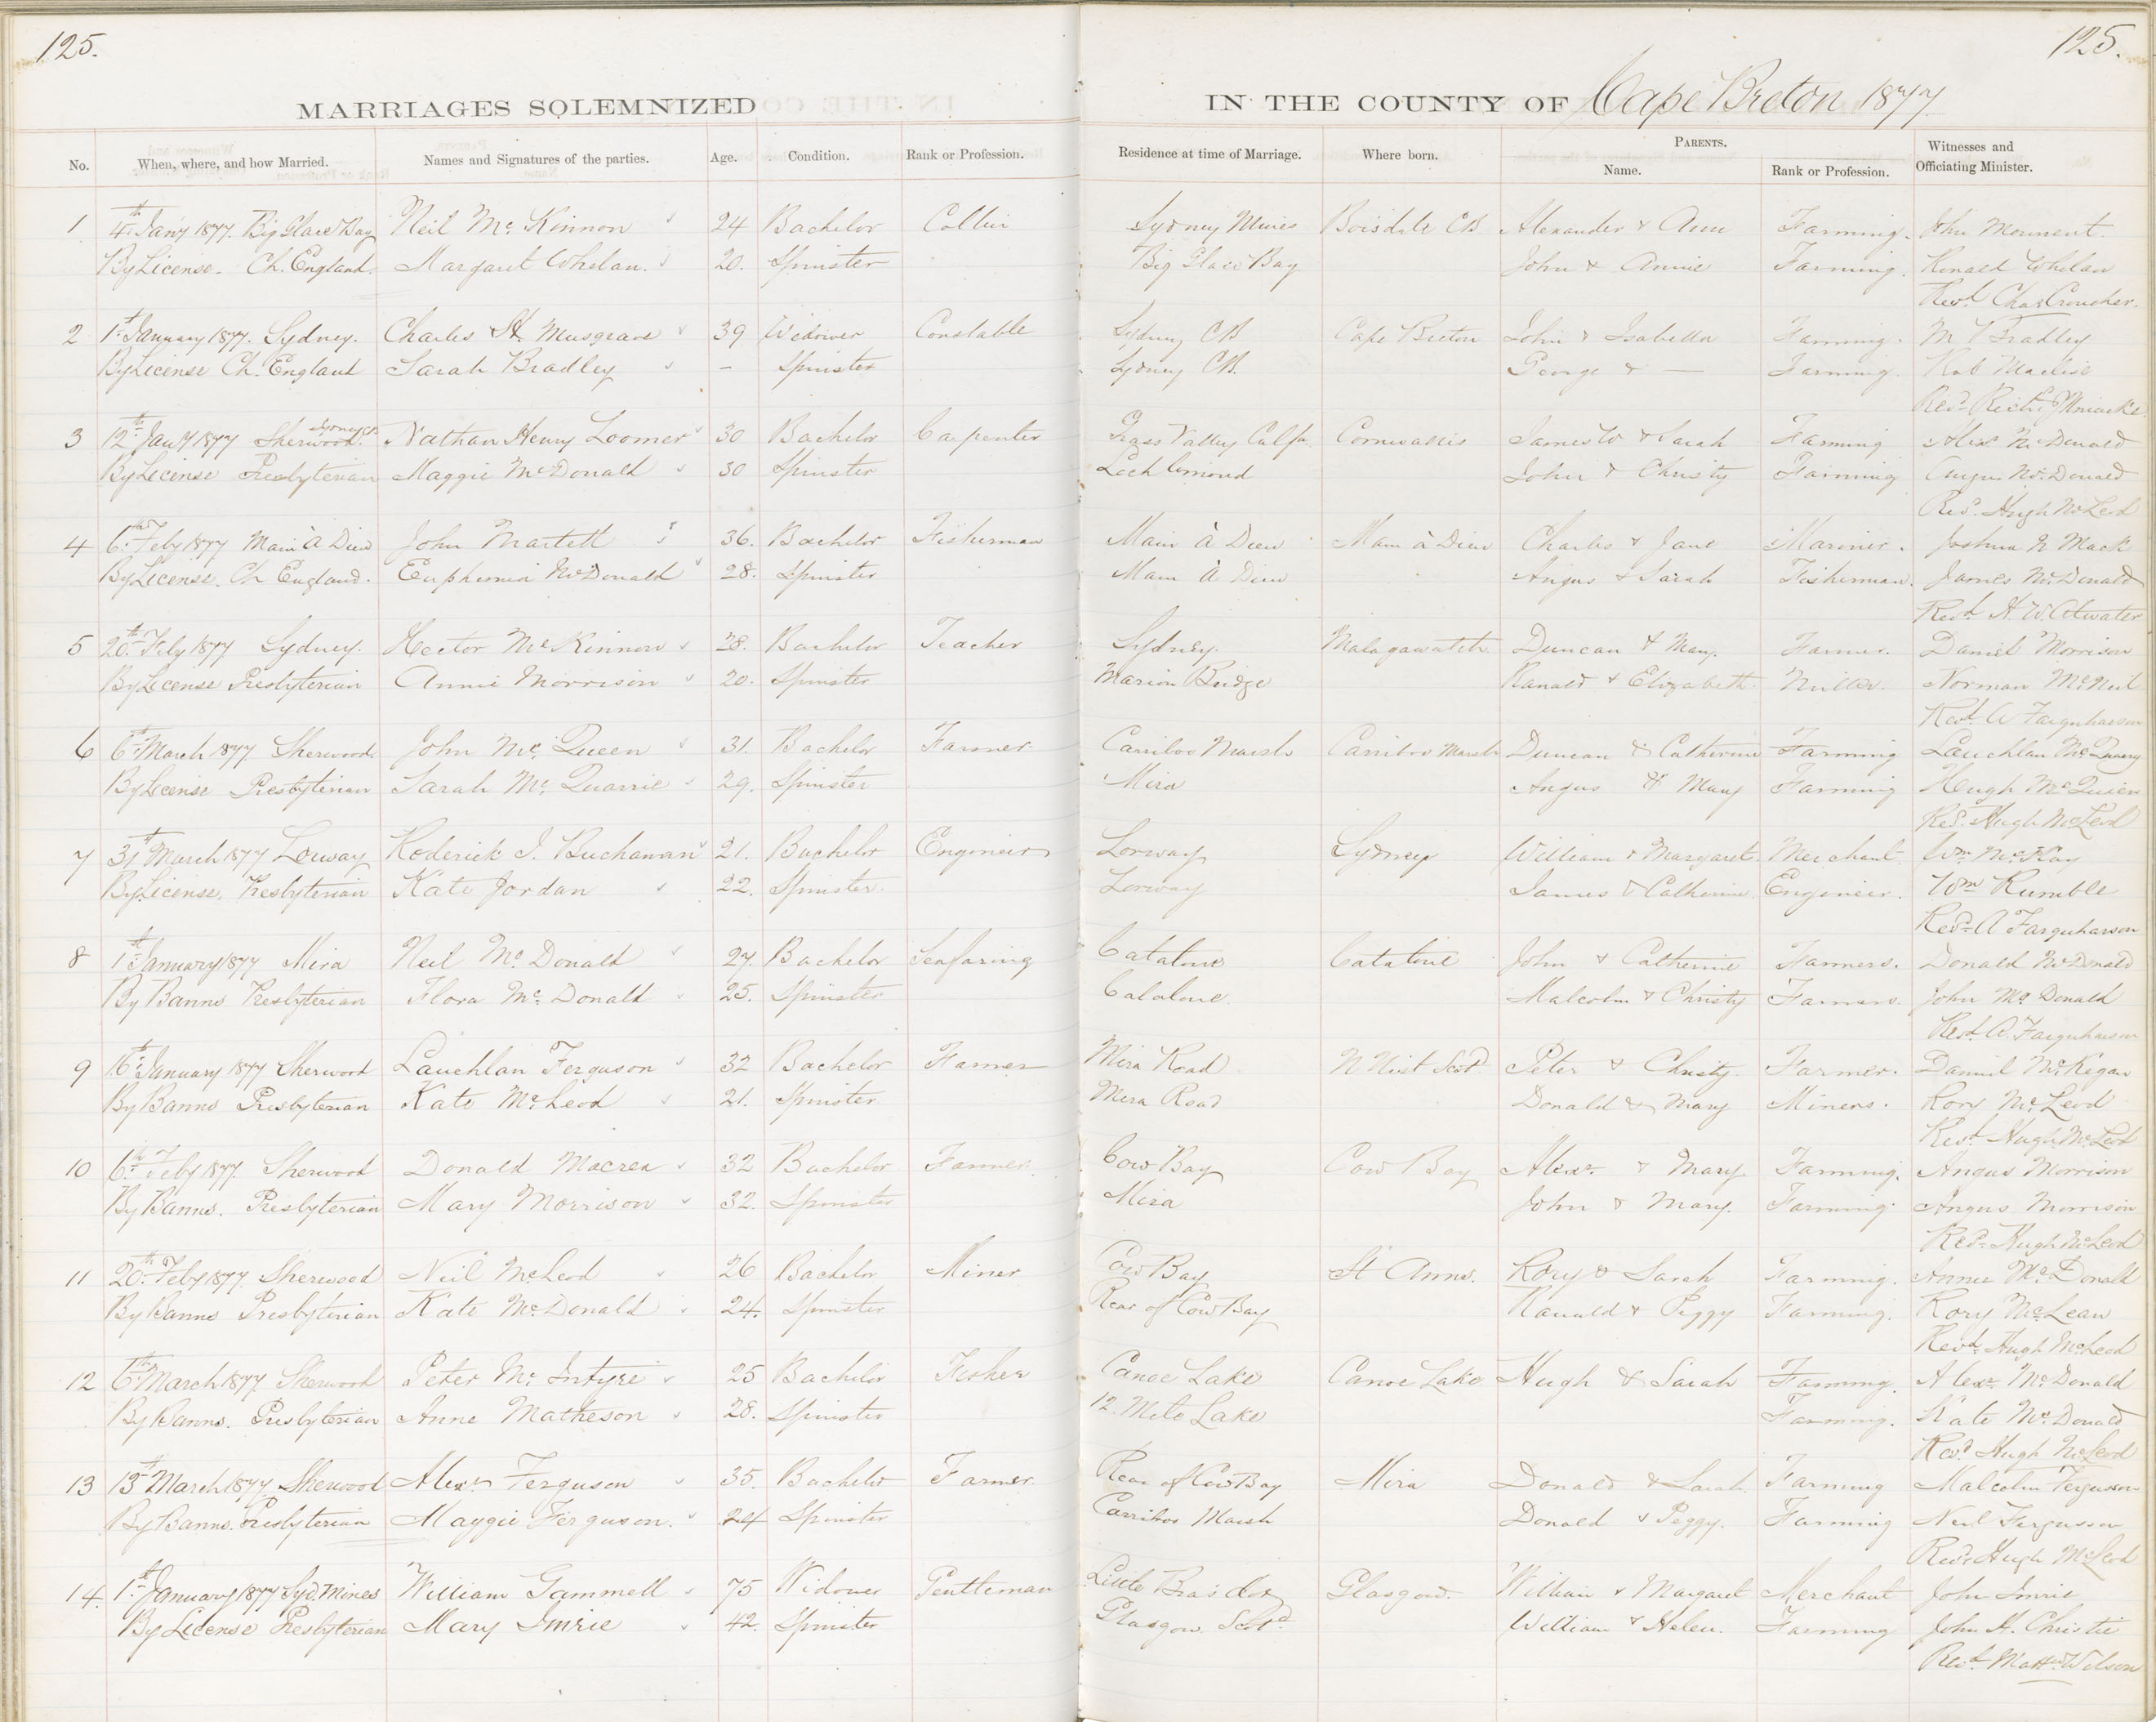 125.
125.
MARRIAGES SOLEMNIZED IN THE COUNTY OF Cape Breton 1877
No. When, where, and how Married. Names and Signatures of the parties. Age. Condition. Rank or Profession. Residence at time of Marriage. Where born. PARENTS. Name. Rank or Profession. Witnesses and Officiating Minister.
1 4th Jany 1877. Big Glace Bay Neil Mc Kinnon 24 Bachelor Collier Sydney Mines Boisdale CB Alexander & Ann Farming. John
By License. Ch. England. Margaret Whelan. 20. Spinster Big Glace Bay John & Annie Farming. Ronald Whelan
Revd Chas Croucher.
2 1st January 1877. Sydney. Charles H. Musgrave 39 Widower Constable Sydney CB Cape Breton John & Isabella Farming. M Bradley
By License Ch. England Sarah Bradley - Spinster Sydney CB. George & — Farming.
Revd Richd J Uniacke
3 12th Jany 1877 Sherwood. Sydney CB Nathan Henry Loomer 30 Bachelor Carpenter Grass Valley Calfa Cornwallis James W & Sarah Farming Alexr McDonald
By License Presbyterian Maggie McDonald 30 Spinster Loch Lomond John & Christy Farming Angus McDonald
Revd. Hugh McLeod
4 6th Feby 1877 Main à Dieu John Martell 36. Bachelor Fisherman Main à Dieu Main à Dieu Charles & Jane Mariner. Joshua N Mack
By License. Ch England. Euphemia McDonald 28. Spinster Main à Dieu Angus & Sarah Fisherman. James McDonald
Revd H. W. Atwater
5 20th Feby 1877 Sydney. Hector McKinnon 28. Bachelor Teacher Sydney. Malagawatch Duncan & Mary. Farmer. Daniel Morrison
By License Presbyterian Annie Morrison 20. Spinster Marion Bridge Ranald & Elizabeth. Miller. Norman McNeil
Revd A Farquharson
6 6th March 1877 Sherwood. John Mc Queen 31. Bachelor Farmer. Carriboo Marsh Carriboo Marsh Duncan & Catherine Farming Lauchlan McQuarry
By License Presbyterian Sarah Mc Quarrie 29. Spinster Mira Angus & Mary Farming Hugh McQuien
Revd. Hugh McLeod
7 31st March 1877 Lorway Roderick J. Buchanan 21. Bachelor Engineer Lorway Sydney William & Margaret. Merchant Wm McKay
By License. Presbyterian Kate Jordan 22. Spinster. Lorway James & Catherine. Engineer. Wm Rumble
Revd A Farquharson
8 1st January 1877 Mira Neil Mc Donald 27. Bachelor Seafaring Catalone Catalone John & Catherine Farmers. Donald McDonald
By Banns Presbyterian Flora Mc Donald 25. Spinster Catalone. Malcolm & Christy Farmers. John Mc Donald
Revd. A. Farquharson
9 16th January 1877 Sherwood Lauchlan Ferguson 32 Bachelor Farmer Mira Road N Uist Scotd. Peter & Christy. Farmer. Daniel McKegan
By Banns Presbyterian Kate McLeod 21. Spinster Mira Road Donald & Mary Miners. Rory McLeod
Revd. Hugh McLeod
10 6th Feby 1877. Sherwood Donald Macrea 32 Bachelor Farmer. Cow Bay Cow Bay Alexr & Mary Farming. Angus Morrison
By Banns. Presbyterian Mary Morrison 32. Spinster Mira John & Mary. Farming. Angus Morrison
Revd. Hugh McLeod
11 20th Feby 1877. Sherwood Neil McLeod 26 Bachelor Miner Cow Bay St Anns. Rory & Sarah Farming. Annie McDonald
By Banns Presbyterian Kate McDonald 24. Spinster Rear of Cow Bay Ranald & Peggy Farming. Rory McLean
Revd. Hugh McLeod
12 6th March 1877 Sherwood Peter Mc Intyre 25 Bachelor Fisher Canoe Lake Canoe Lake Hugh & Sarah Farming. Alexr McDonald
By Banns. Presbyterian Anne Matheson 28. Spinster 12. Mile Lake Farming. Kate McDonald
Revd Hugh McLeod
13 13th March 1877 Sherwood Alexr Ferguson 35. Bachelor Farmer. Rear of Cow Bay Mira Donald & Sarah Farming Malcolm Ferguson
By Banns. Presbyterian Maggie Ferguson. 24 Spinster Carriboo Marsh Donald & Peggy. Farming Neil Ferguson
Revd Hugh McLeod
14. 1st January 1877 Syd. Mines William Gammell 75 Widower Gentleman Little Bras dor Glasgow. William & Margaret Merchant John Imrie
By License Presbyterian Mary Imrie 42. Spinster Glasgow Scotd William & Helen. Farming John H. Christie
Revd. Matthw Wilson